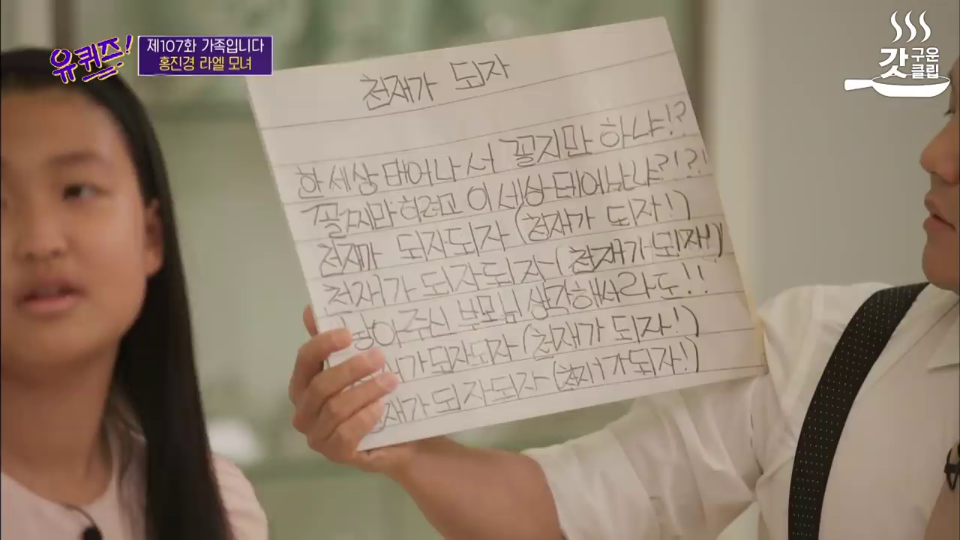 유퀴즈!
제107화 가족입니다
홍진경 라엘 모녀
갓구운클립
천재가 되자
한 세상 태어나서 꼴지만 하냐!?
꼴찌만 하려고 이 세상 태어났냐?!?!
천재가 되자되자 (천재가 되자!)
천재가 되자되자 (천재가 되자!)
낳아주신 부모님 생각해서라도!!
가 되자되자 (천재가 되자!)
재가 되자되자 (천재가 되자!)